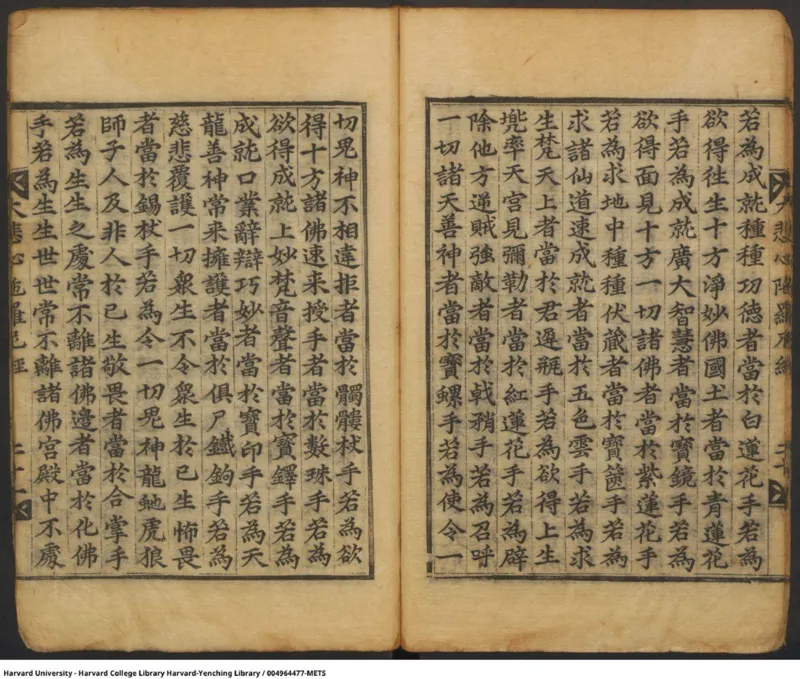 若為成就種種功德者當於白蓮花手若為
欲得往生十方淨妙佛國土者當於青蓮花
手若為成就廣大智慧者當於寶鏡手若為
欲得面見十方一切諸佛者當於紫蓮花手
若為求地中種種伏藏者當於寶篋手若為
求諸仙道速成就者當於五色雲手若為求
生梵天上者當於君遲瓶手若為欲得上生
兠率天宮見彌勒者當於紅蓮花手若為辟
除他方逆賊強敵者當於戟矟手若為召呼
一切諸天善神者當於寶螺手若為使令一
切鬼神不相違拒者當於髑髏杖手若為欲
得十方諸佛速来授手者當於數珠手若為
欲得成就上妙梵音聲者當於寶鐸手若為
成就口業辭辯巧妙者當於寶印手若為天
龍善神常来擁護者當於俱尸鐵鉤手若為
慈悲覆護一切衆生不令衆生於已生怖畏
者當於錫杖手若為令一切鬼神龍虵虎狼
師子人及非人於已生敬畏者當於合掌手
若為生生之處常不離諸佛邉者當於化佛
手若為生生世世常不離諸佛宮殿中不處
大悲心陁羅尼經 二十一
Harvard University - Harvard College Library Harvard-Yenching Library / 004964477-METS